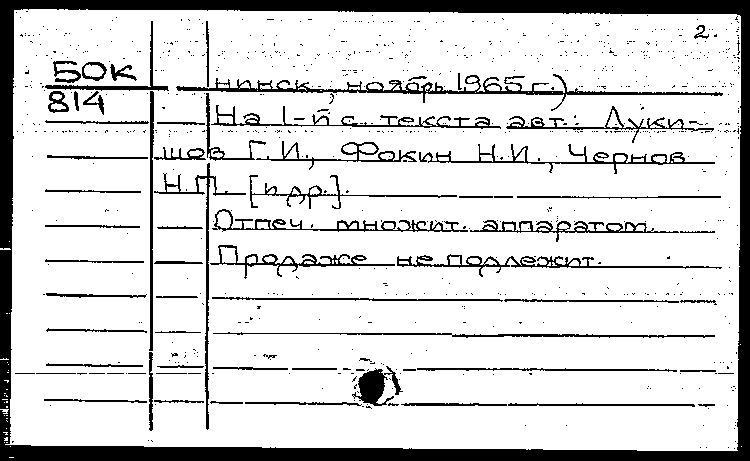 2.
50К
814
нинск, ноябрь 1965 г.)
На 1-й с. текста авт.: Луки-
шов Г.И., Фокин Н.И., Чернов
Н.П. [и др.].
Отпеч. множит. аппаратом.
Продаже не подлежит.